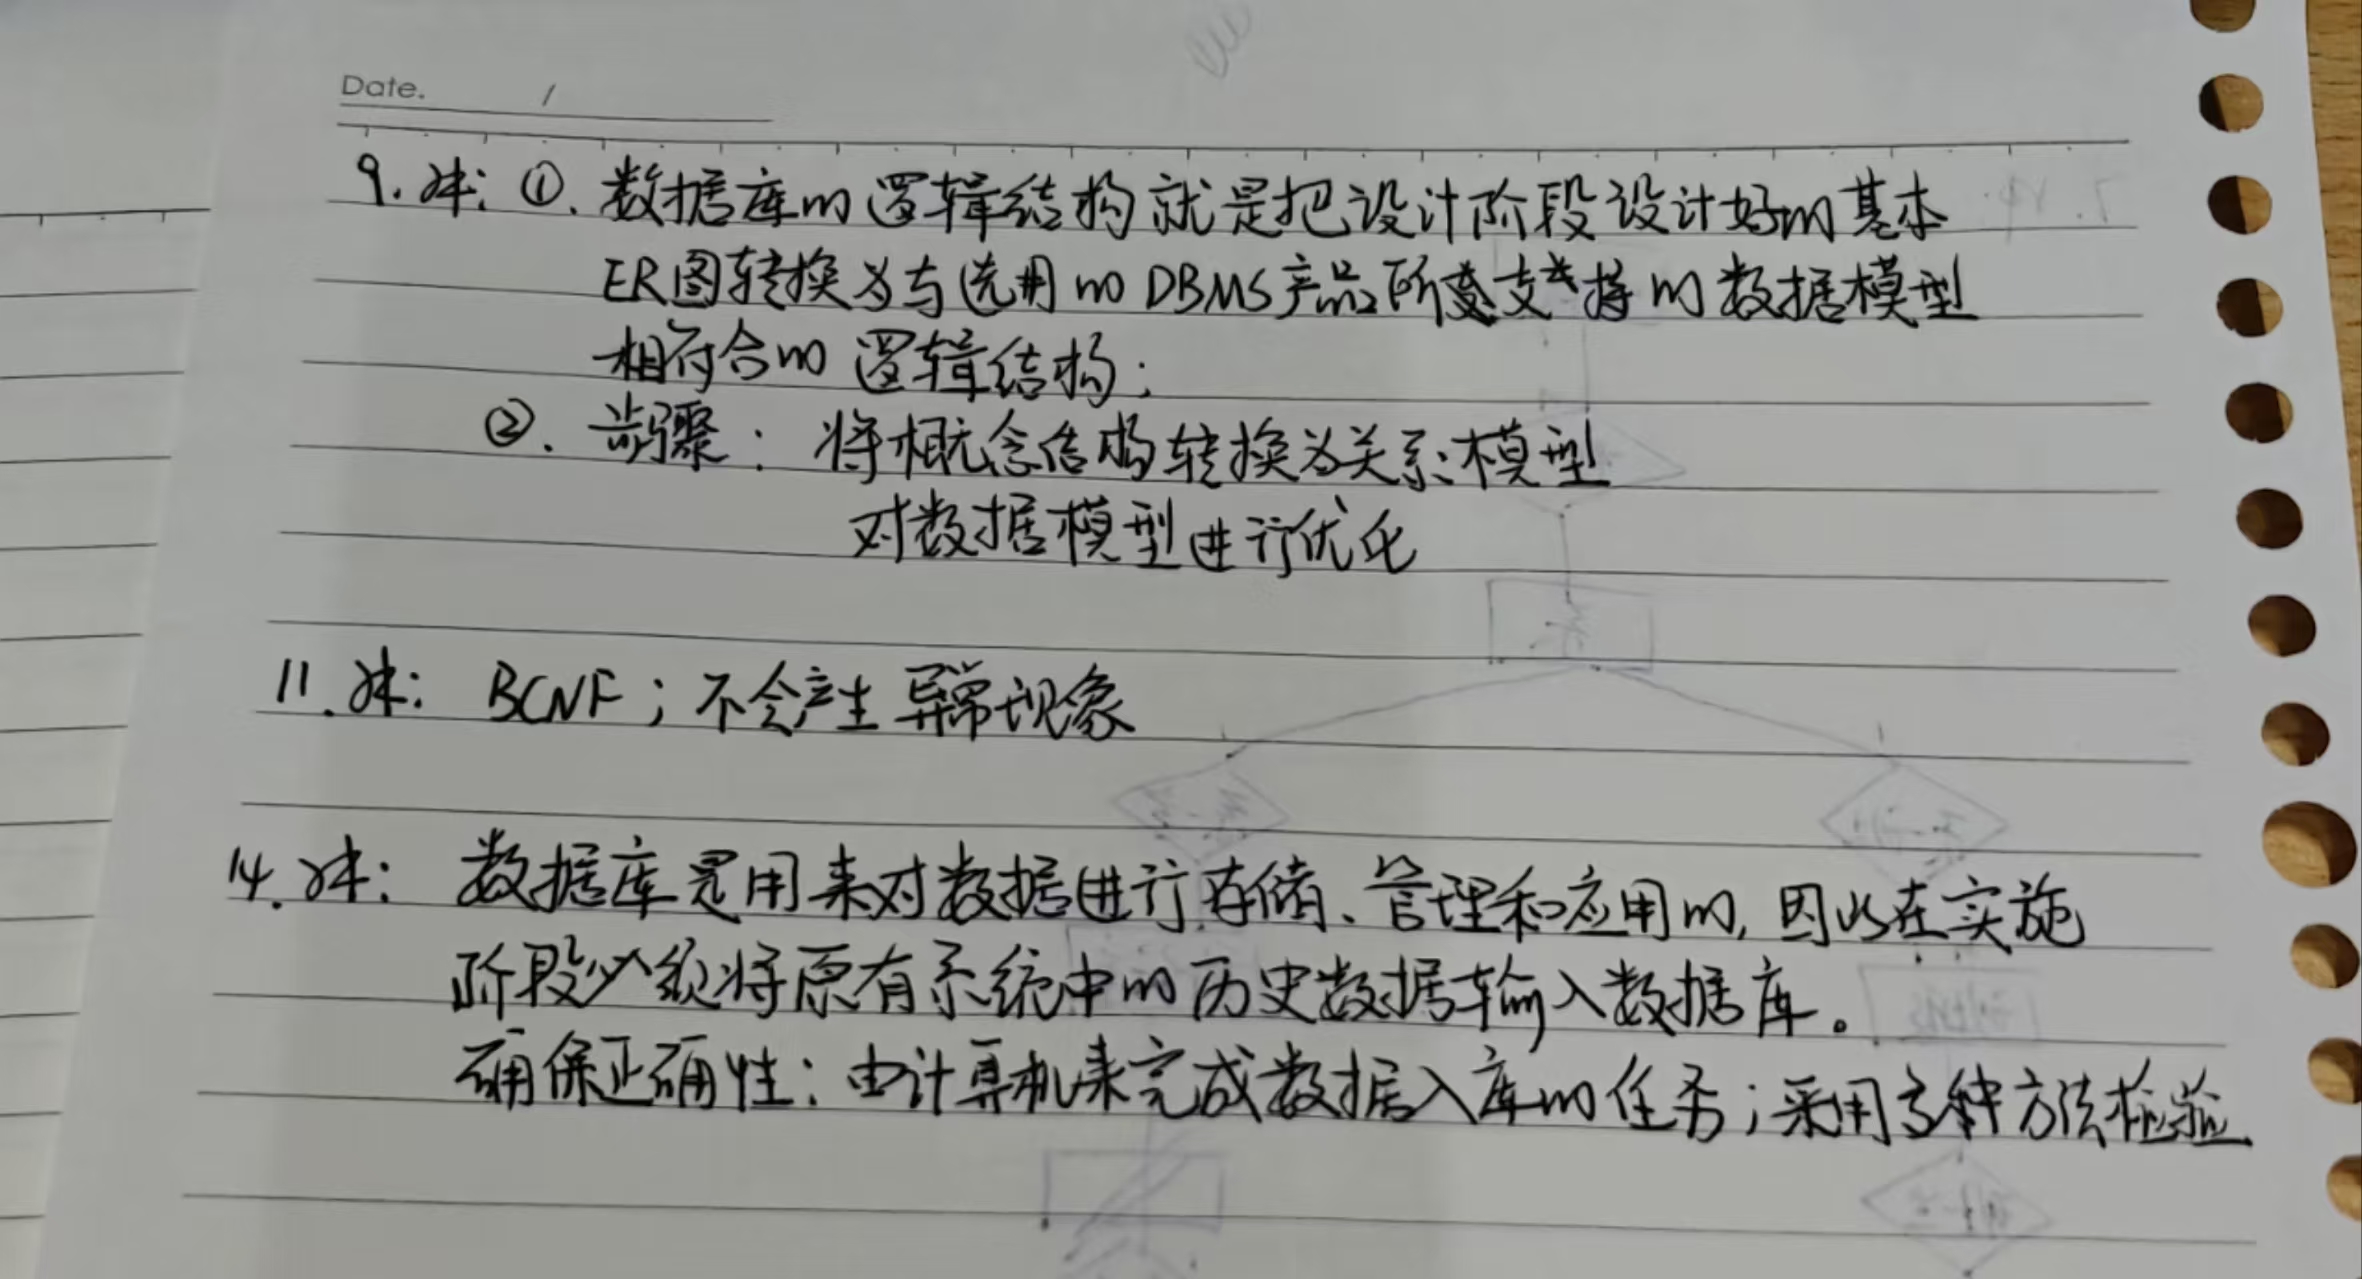 Date. /
9. 解: ①. 数据库的逻辑结构就是把设计阶段设计好的基本
ER图转换为与选用的DBMS产品所支持的数据模型
相符合的逻辑结构;
②. 步骤: 将概念结构转换为关系模型
对数据模型进行优化
11. 解: BCNF; 不会产生异常现象
14. 解: 数据库是用来对数据进行存储、管理和应用的, 因此在实施
阶段必须将原有系统中的历史数据输入数据库。
确保正确性: 由计算机来完成数据入库的任务; 采用多种方法检验